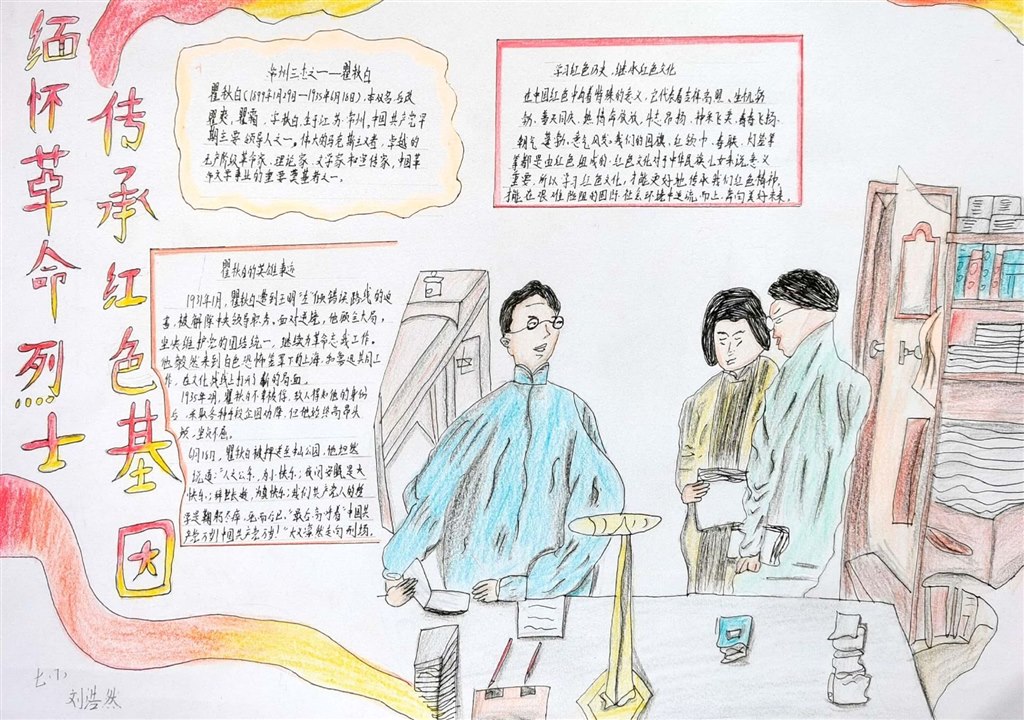 缅怀革命烈士
传承红色基因
常州三杰之一——瞿秋白
瞿秋白(1899年1月29日—1935年6月18日),本双名,后改
瞿爽、瞿霜,字秋白,生于江苏常州。中国共产党早
期主要领导人之一。伟大的马克思主义者,卓越的
无产阶级革命家、理论家、文学家和宣传家,中国革
命文学事业的重要奠基者之一。
学习红色历史,继承红色文化
在中国红色中有着特殊的意义,它代表着吉祥高照、生机勃
勃、普天同庆、热情奔放、斗志昂扬、神采飞扬、青春飞扬、
朝气蓬勃、意气风发,我们的国旗、红领巾、春联、灯笼等
等都是由红色组成的。红色文化对于中华民族儿女来说意义
重要,所以学习红色文化,才能更好地传承我们红色精神,
才能在艰难险阻的国际社会环境中逆流而上,奔向美好未来。
瞿秋白的英雄事迹
1931年1月,瞿秋白遭到王明"左"倾错误路线的迫
害,被解除中央领导职务。面对逆境,他顾全大局,
坚决维护党的团结统一,继续为革命忘我工作。
他毅然来到白色恐怖笼罩下的上海,和鲁迅共同工
作,在文化战线上打开了新的局面。
1935年2月,瞿秋白不幸被俘,敌人得知他的身份
后,采取各种手段企图劝降,但他始终高昂头
颅,坚贞不屈。
6月18日,瞿秋白被押送至中山公园,他坦然
说道:"人之公余,为小快乐;夜间安眠,是大
快乐;辞世长逝,为真快乐;我们共产党人的哲
学是鞠躬尽瘁,死而后已。"最后,高呼着"中国共
产党万岁!中国共产党万岁!"大义凛然走向刑场。
七.(1)
刘浩然